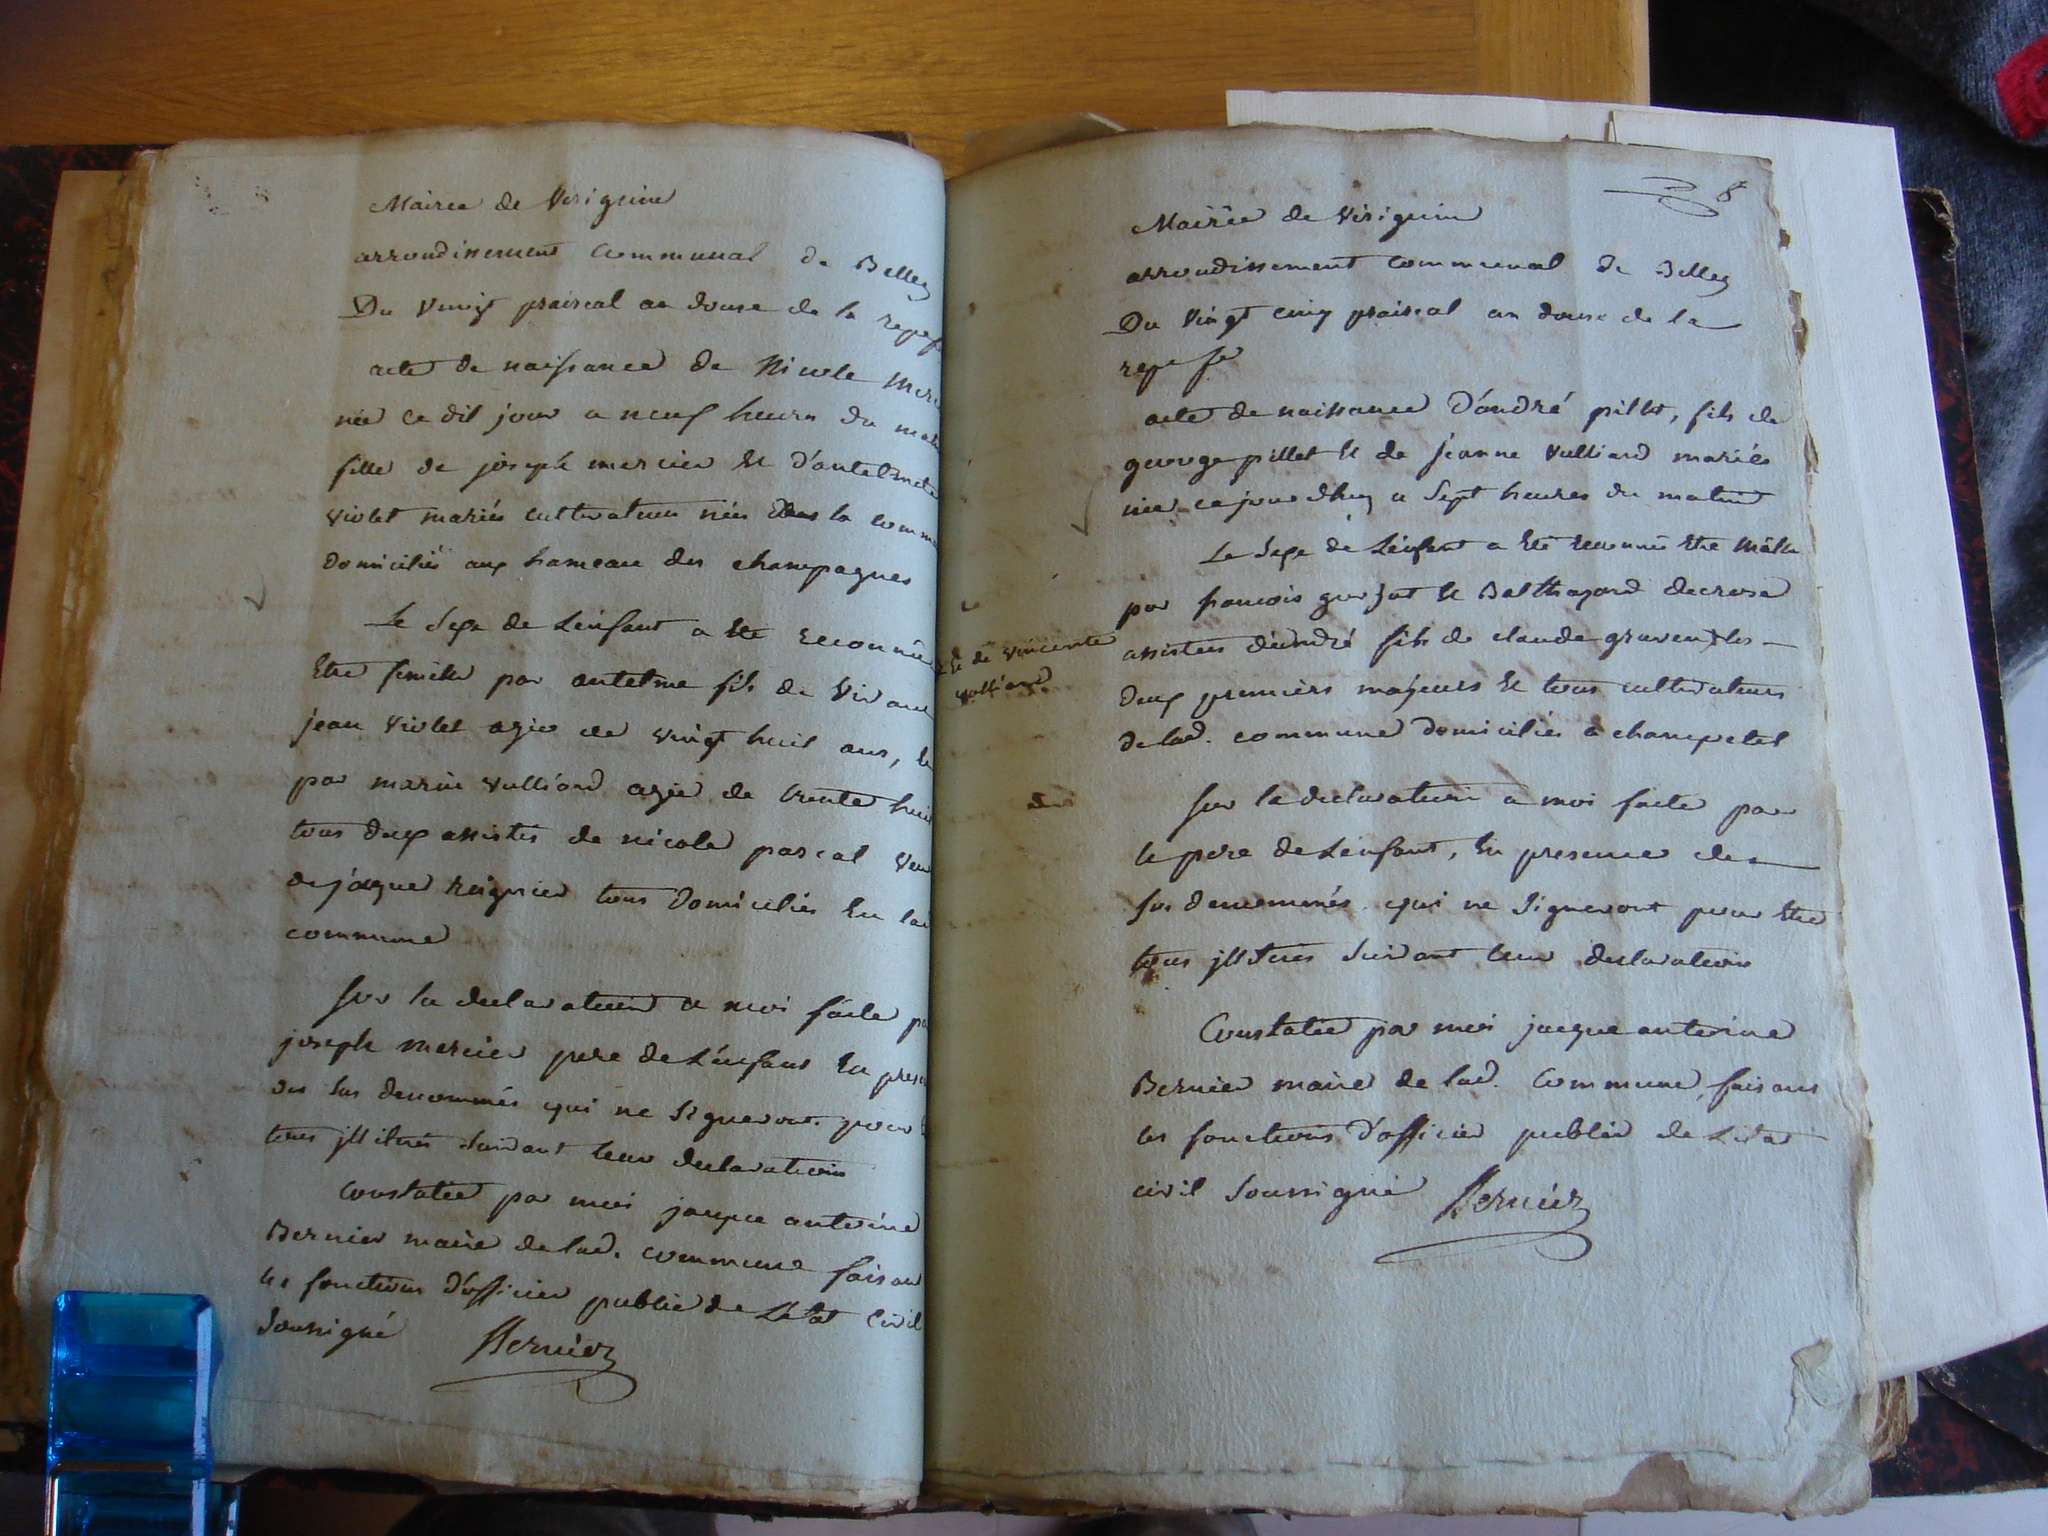 Mairie de Virignin
arrondissement communal de Belley
Du vingt prairial an douse de la rep. fse
acte de naissance de Nicole Merc
née ce dit jour a neuf heures du mat
fille de joseph mercier et d'antelmete
violet mariés cultivateurs nés dans la comm
domiciliés aux hameau des champagnes
Le sexe de L'enfant a eté reconnu
Etre femille par antelme fils de vivant
jean violet agée de vingt huit ans, et
par marie vulliard agée de trente huit
tous deux assistés de nicole pascal veu
de jaque reignier tous domiciliés en lad
commune
sur la declaration a moi faite pa
joseph mercier pere de L'enfant En prese
des sus denommés qui ne signeront pour
tous illiterés suivant leur declaration
Constatée par moi jaque antoine
Bernier maire de lad. commune faisant
les fonctions d'officier public de L'etat Civil
soussigné Bernier
8
Mairie de Virignin
arrondissement communal de Belley
Du vingt cinq prairial an douse de la
rep. fse
acte de naissance d'andré pillet, fils de
george pillet et de jeanne vulliard mariés
née ce jourd'huy a sept heures du matin
Le sexe de L'enfant a eté reconnu Etre mâle
par francois et Balthazard decrose
assistés d'andré fils de claude graven + les
deux premiers majeurs et tous cultivateurs
de lad. commune domiciliés a champetel
+ et de vincente
vulliard
sur la declaration a moi faite par
le pere de L'enfant, En presence des
sus denommés qui ne signeront pour Etre
tous illiterés suivant leur declaration
Constatée par moi jaque antoine
Bernier maire de lad. Commune, faisant
les fonctions d'officier public de L'etat
civil soussigné Bernier